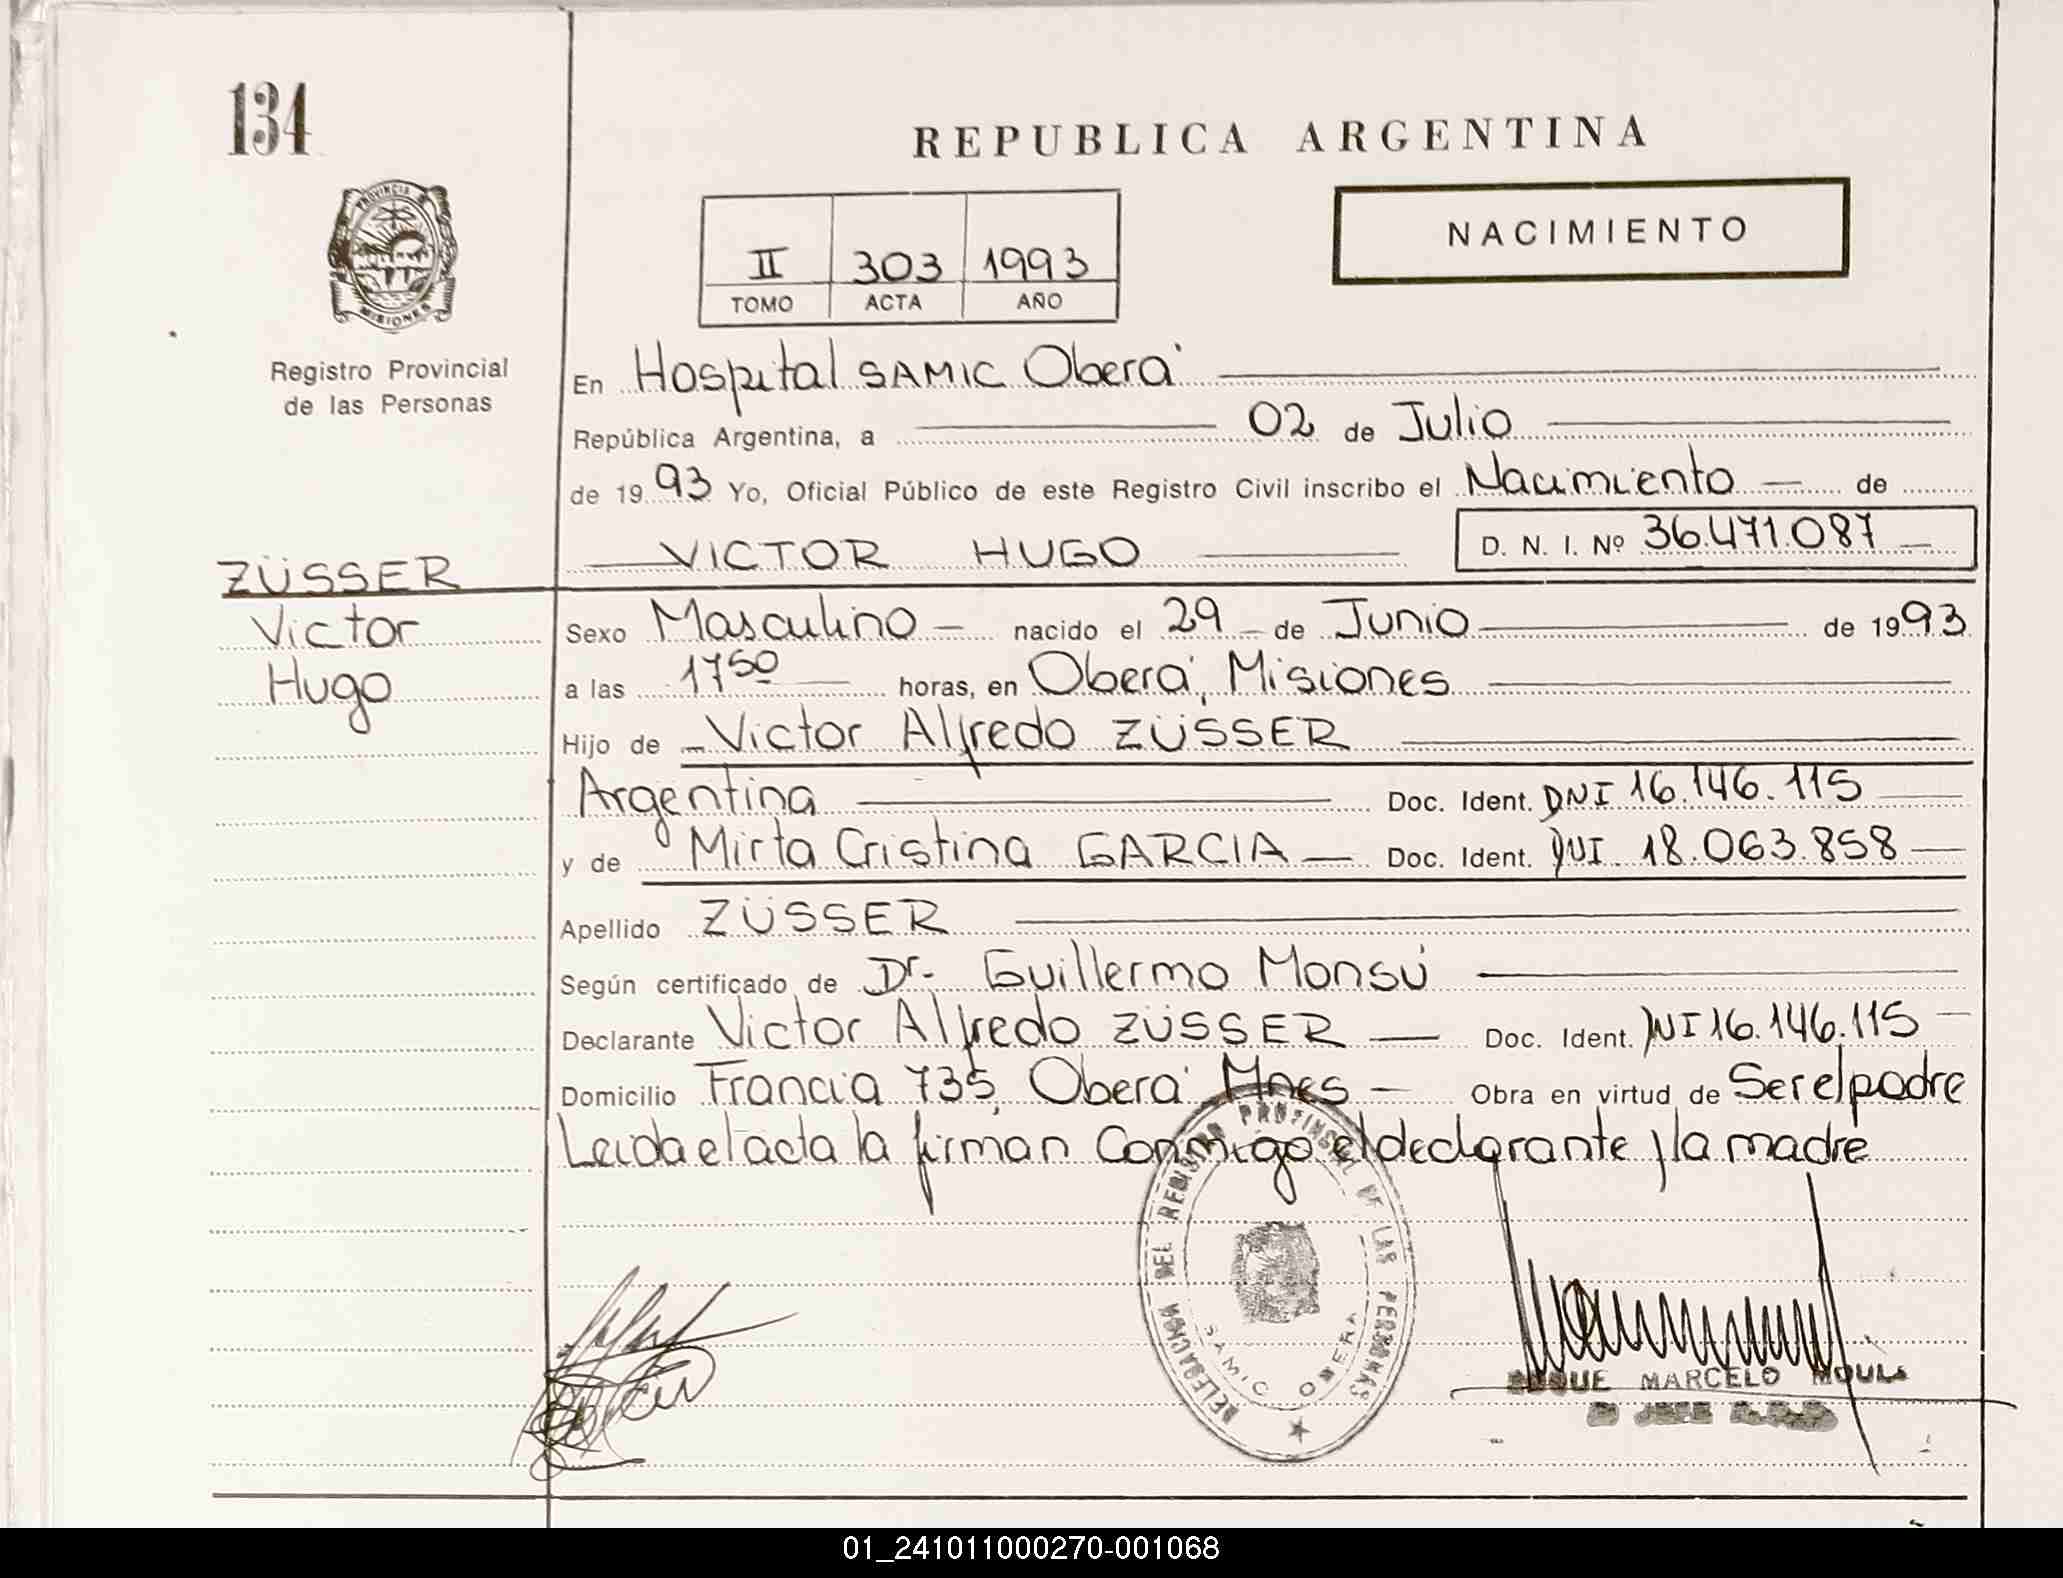 134
REPUBLICA ARGENTINA
PROVINCIA
MISIONES
Registro Provincial
de las Personas
II 303 1993
TOMO ACTA AÑO
NACIMIENTO
En Hospital SAMIC Oberá
República Argentina, a 02 de Julio
de 1993 Yo, Oficial Público de este Registro Civil inscribo el Nacimiento de
VICTOR HUGO D. N. I. Nº 36.471.087
ZÜSSER
Victor
Hugo
Sexo Masculino nacido el 29 de Junio de 1993
a las 17 50 horas, en Oberá, Misiones
Hijo de Victor Alfredo ZÜSSER
Argentina Doc. Ident. DNI 16.146.115
y de Mirta Cristina GARCIA Doc. Ident. DNI 18.063.858
Apellido ZÜSSER
Según certificado de Dr. Guillermo Monsú
Declarante Victor Alfredo ZÜSSER Doc. Ident. DNI 16.146.115
Domicilio Francia 735, Oberá Mnes Obra en virtud de Ser el padre
Leida el acta la firman conmigo el declarante y la madre
DELEGACION DEL REGISTRO PROVINCIAL DE LAS PERSONAS
SAMIC OBERA
MARCELO
01_241011000270-001068